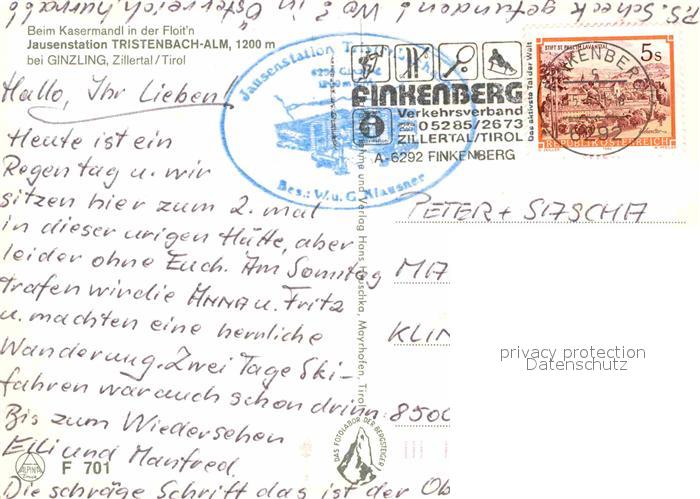 P.S. Scheck gefunden! Wo? in Österreich, hurra!!
Beim Kasermandl in der Floit'n
Jausenstation TRISTENBACH-ALM, 1200 m
bei GINZLING, Zillertal/Tirol
Hallo, Ihr Lieben!
Heute ist ein
Regentag u. wir
sitzen hier zum 2. mal
in dieser urigen Hütte, aber
leider ohne Euch. Am Sonntag
trafen wir die ANNA u. Fritz
u. machten eine herrliche
Wanderung. Zwei Tage Ski-
fahren war auch schon drinn.
Bis zum Wiedersehen
Elli und Manfred.
Die schräge Schrift das ist der Ob
ALPINA
F 701
Jausenstation
Bes.: W. u. G. Klausner
FINKENBERG
Verkehrsverband
05285/2673
ZILLERTAL/TIROL
A-6292 FINKENBERG
Das aktivste Tal der Welt
FINKENBERG
6292
STIFT ST. PAUL IM LAVANTTAL
5 S
REPUBLIK ÖSTERREICH
und Verlag Hans Hruschka, Mayrhofen, Tirol
DAS FOTOLABOR DER BERGSTEIGER
PETER + SASCHA
MA
KLIN
8500
privacy protection
Datenschutz